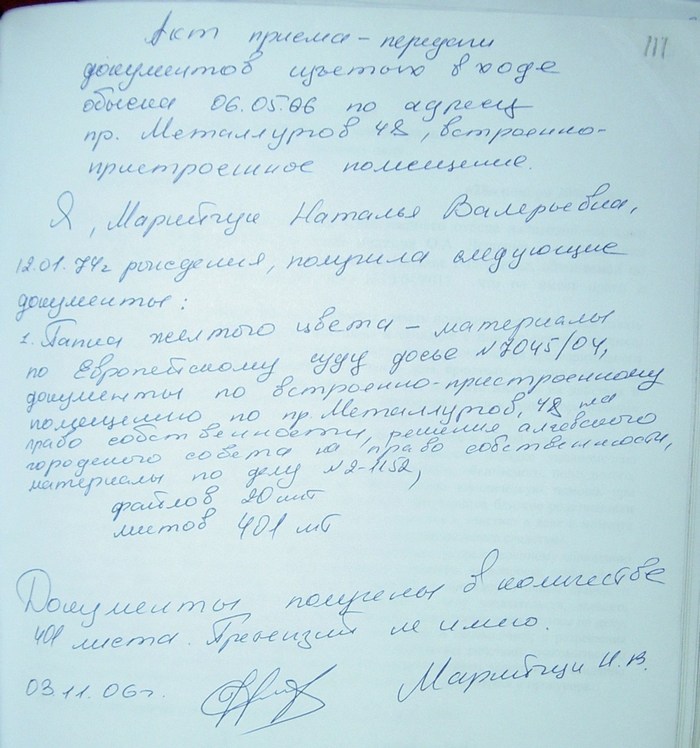 111
Акт приема-передачи
документов изъятых в ходе
обыска 06.05.06 по адресу
пр. Металлургов 48, встроенно-
пристроенное помещение.
Я, Марийчук Наталья Валерьевна,
12.01.74г рождения, получила следующие
документы:
1. Папка желтого цвета - материалы
по Европейскому суду досье №7045/04,
документы по встроенно-пристроенному
помещению по пр. Металлургов, 48 на
право собственности, решение алчевского
городского совета на право собственности,
материалы по делу №2-1152,
файлов 20 шт
листов 401 шт
Документы получены в количестве
401 листа. Претензий не имею.
03.11.06г. Марийчук Н.В.